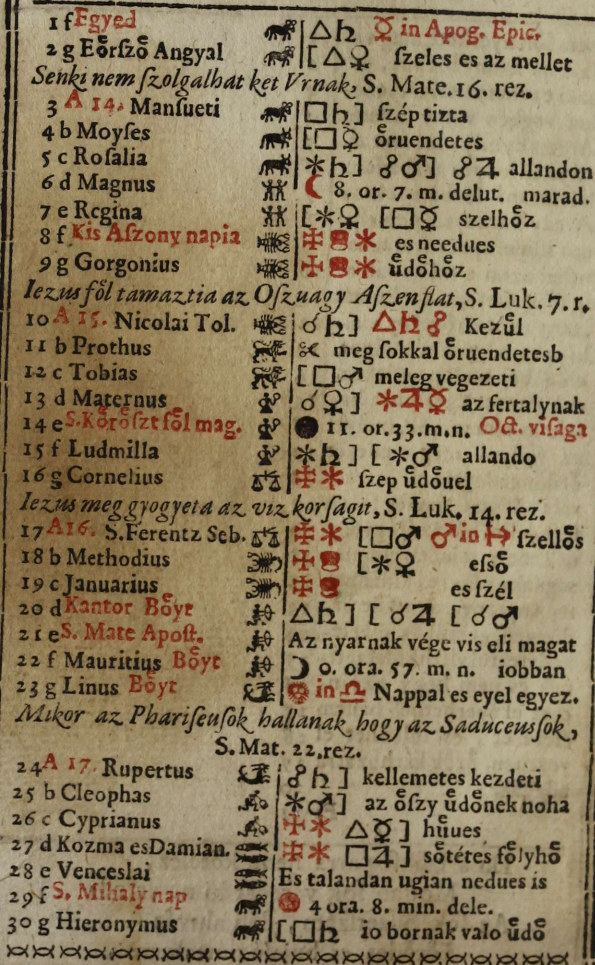 1 f Egyed △♄ ☿ in Apog. Epic.
2 g Eoͤrſzoͤ Angyal [ △♀ ſzeles es az mellet
Senki nem ſzolgalhat ket Vrnak, S. Mate. 16. rez.
3 A 14. Manſueti □♄ ] ſzép tizta
4 b Moyſes [ □☿ oͤruendetes
5 c Roſalia ✶♄ ] ☍♂ ] ☍♃ allandon
6 d Magnus ☾ 8. or. 7. m. delut. marad.
7 e Regina [ ✶♀ [ □☿ szelhoͤz
8 f Kis Aſzony napia ✠ ✶ es needues
9 g Gorgonius ✠ ✶ uͤdoͤhoͤz
Iezus foͤl tamaztia az Oſzuagy Aſzenſiat, S. Luk. 7. r.
10 A 15. Nicolai Tol. ☌♄ ] △♄☍ Kezuͤl
11 b Prothus ✂ meg ſokkal oͤruendetesb
12 c Tobias [ □♂ meleg vegezeti
13 d Maternus ☌♀ ] ✶♃☿ az fertalynak
14 e S. Koͤroͤſzt foͤl mag. ● 11. or. 33. m. n. Oct. viſaga
15 f Ludmilla ✶♄ ] [ ✶♂ allando
16 g Cornelius ✠ ✶ szep uͤdoͤuel
Iezus meg gyogyeta az viz korſagit, S. Luk. 14. rez.
17 A 16. S. Ferentz Seb. ✠ ✶ [ □♂ ♂ in ♐ szelloͤs
18 b Methodius ✠ [ ✶♀ eſsoͤ
19 c Januarius ✠ es ſzél
20 d Kantor Boͤyt △♄ ] [ ☌♃ [ ☌♂
21 e S. Mate Apoſt. Az nyarnak vége vis eli magat
22 f Mauritius Boͤyt ☽ 0. ora. 57. m. n. iobban
23 g Linus Boͤyt ☉ in ♎ Nappal es eyel egyez.
Mikor az Phariſeuſok hallanak hogy az Saduceusſok,
S. Mat. 22. rez.
24 A 17. Rupertus ☍♄ ] kellemetes kezdeti
25 b Cleophas ✶♂ ] az oͤſzy uͤdoͤnek noha
26 c Cyprianus ✠ ✶ △☿ ] huͤues
27 d Kozma es Damian. ✠ ✶ □♃ ] soͤtétes foͤlyhoͤ
28 e Venceslai Es talandan ugian nedues is
29 f S. Mihaly nap 4 ora. 8. min. dele.
30 g Hieronymus [ □♄ io bornak valo uͤdoͤ